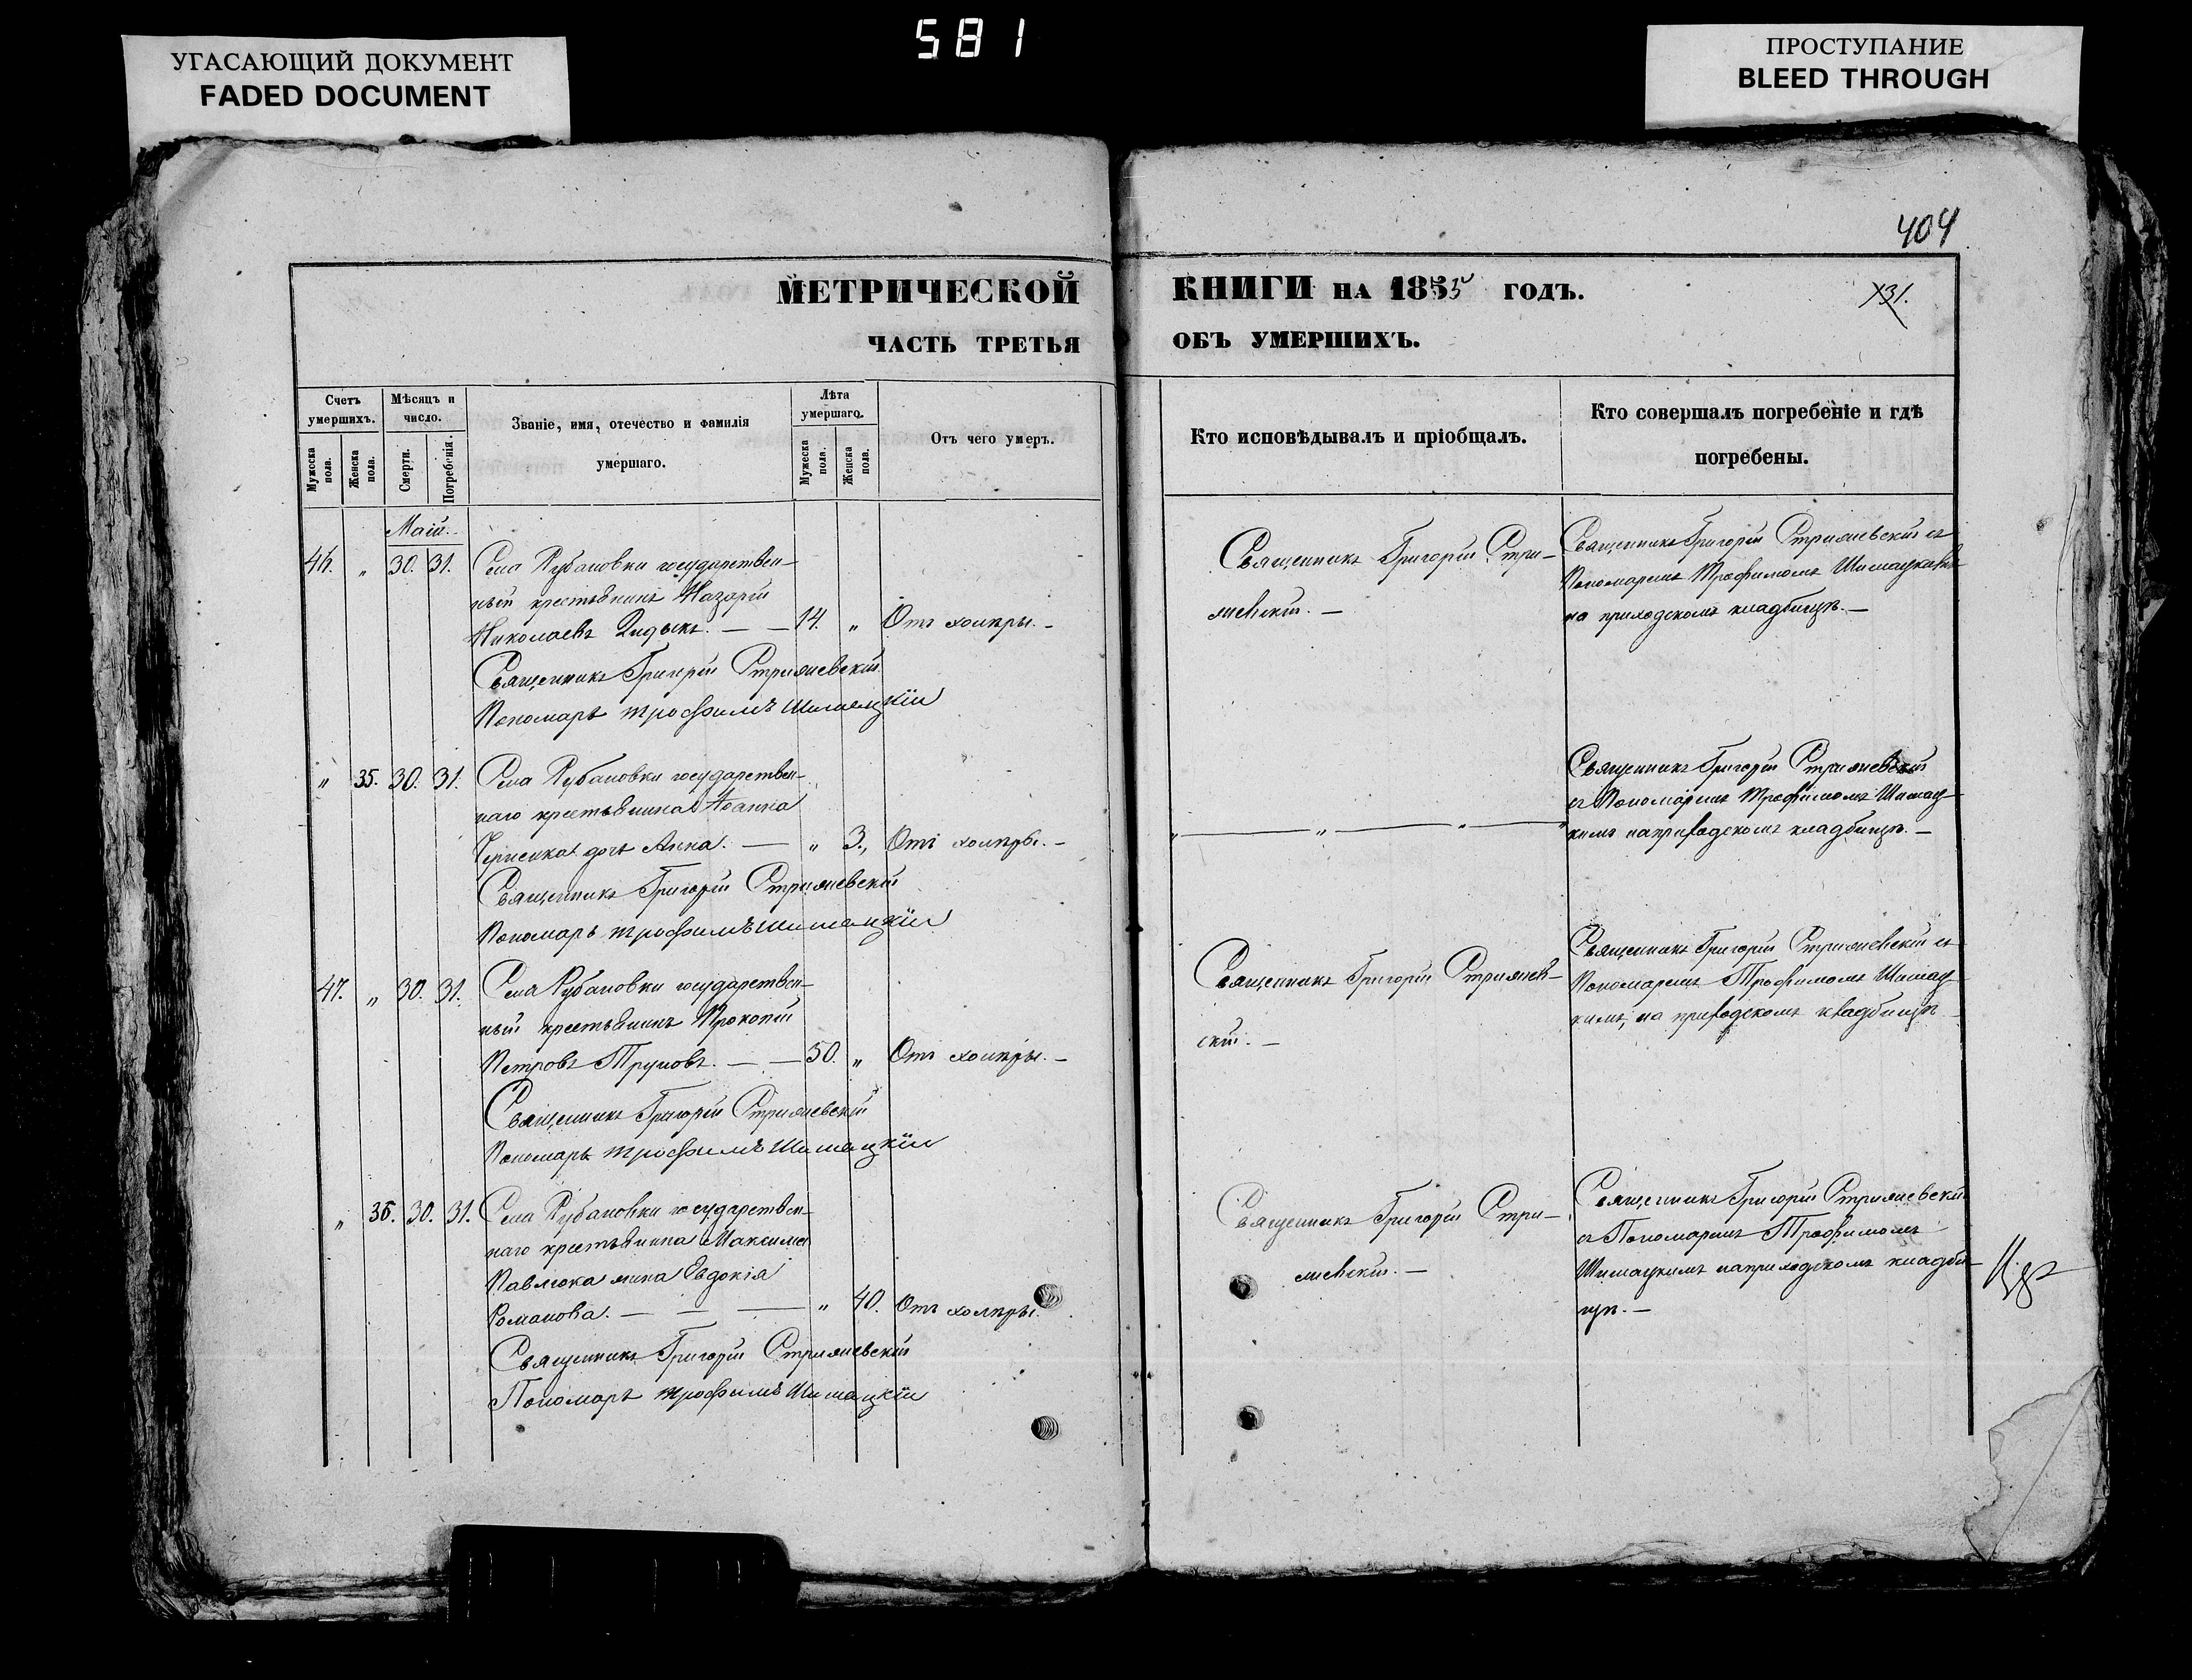 581
УГАСАЮЩИЙ ДОКУМЕНТ
FADED DOCUMENT
ПРОСТУПАНИЕ
BLEED THROUGH
404
МЕТРИЧЕСКОЙ
ЧАСТЬ ТРЕТЬЯ
КНИГИ НА 1855 ГОДЪ.
131.
ОБЪ УМЕРШИХЪ.
Счетъ умершихъ.
Мужеска пола.
Женска пола.
Мѣсяцъ и число.
Смерти.
Погребенія.
Званіе, имя, отечество и фамилія
умершаго.
Лѣта умершаго.
Мужеска пола.
Женска пола.
Отъ чего умеръ.
Кто исповѣдывалъ и пріобщалъ.
Кто совершалъ погребеніе и гдѣ
погребены.
Маій.
46. „ 30. 31. Села Рубановки государствен-
ный крестьянинъ Назарій
Николаевъ — — 14. „ Отъ холеры. —
Священникъ Григорій Стрижевскій
Пономарь Трофимъ Шимацкій
Священникъ Григорій Стри-
жевскій. —
Священникъ Григорій Стрижевскій съ
Пономаремъ Трофимомъ Шимацкимъ
на приходскомъ кладбищѣ. —
„ 35. 30. 31. Села Рубановки государствен-
наго крестьянина Іоанна
дочь Анна. — „ 3., Отъ холеры. —
Священникъ Григорій Стрижевскій
Пономарь Трофимъ Шимацкій
„ — „ — „ — „
Священникъ Григорій Стрижевскій
съ Пономаремъ Трофимомъ Шимац-
кимъ на приходскомъ кладбищѣ. —
47. „ 30. 31. Села Рубановки государствен-
ный крестьянинъ Прокопій
Петровъ Труновъ. — — 50. „ Отъ холеры. —
Священникъ Григорій Стрижевскій
Пономарь Трофимъ Шимацкій
Священникъ Григорій Стрижев-
скій. —
Священникъ Григорій Стрижевскій съ
Пономаремъ Трофимомъ Шимац-
кимъ, на приходскомъ кладбищѣ
„ 36. 30. 31. Села Рубановки государствен-
наго крестьянина Максима
Павлюка жена Евдокія
Романова. — — — „ 40. Отъ холеры.
Священникъ Григорій Стрижевскій
Пономарь Трофимъ Шимацкій
Священникъ Григорій Стри-
жевскій. —
Священникъ Григорій Стрижевскій
съ Пономаремъ Трофимомъ
Шимацкимъ на приходскомъ кладби-
щѣ. —